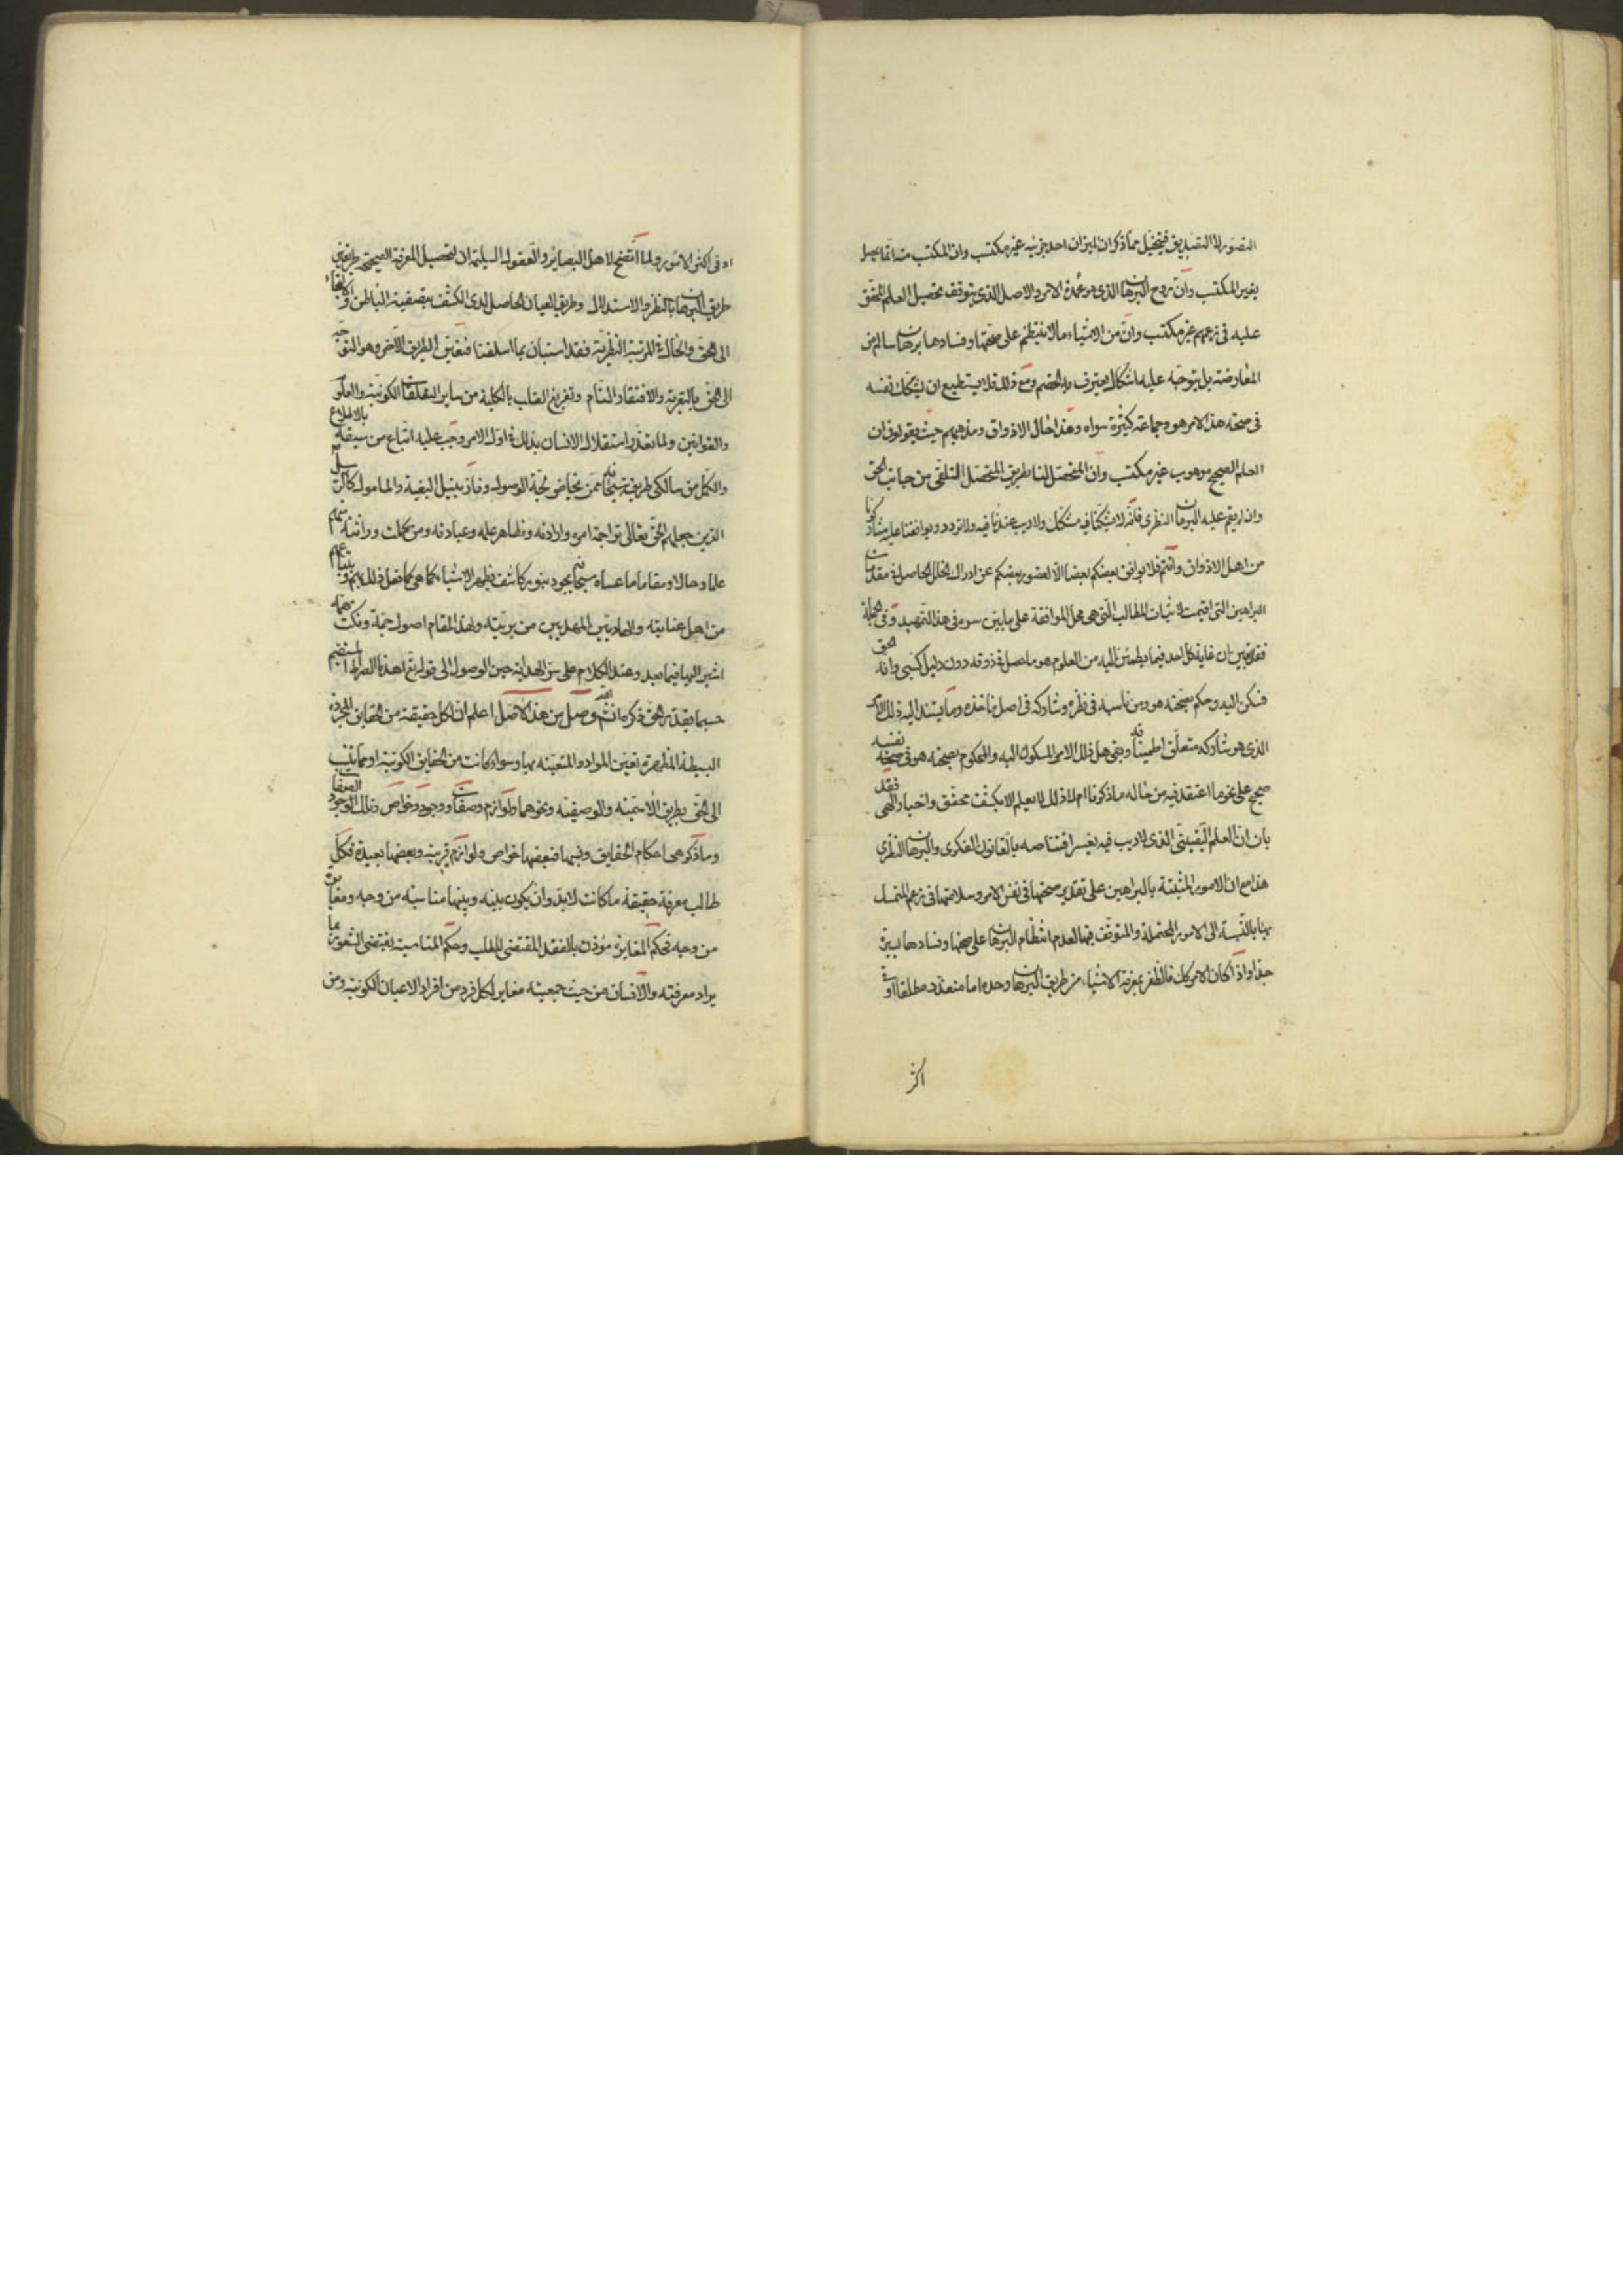 التصور لا التصديق فيتحصل مما ذكر ان الميزان احد جزئيه غير مكتسب وان المكتسب منه انما يحصل
بغير المكتسب وان روح البرهان الذي هو عمدة الامر والاصل الذي يتوقف تحصيل العلم المحقق
عليه في زعمهم غير مكتسب وان من الاشياء ما لا ينتظم على صحتها وفسادها برهان سالم من
المعارضة بل يتوجه عليه اشكال يعترف به الخصم ومع ذلك فلا يستطيع ان يشكك نفسه
في صحة هذا الامر هو وجماعة كثيرة سواه وهذا حال الاذواق ومذهبهم حيث يقولون ان
العلم الصحيح موهوب غير مكتسب وان المتحصل لنا بطريق التلقي من جانب الحق
وان لم يقم عليه البرهان النظري فانه لا يشككنا فيه مشكك ولا ريب عندنا فيه ولا تردد ويوافقنا عليه مشاركونا
من اهل الاذواق وانتم فلا يوافق بعضكم بعضا الا لقصور بعضكم عن ادراك الخلل الحاصل في مقدمات
البراهين التي اقيمت لاثبات المطالب التي هي محل الموافقة على ما بين سره في هذا التمهيد وفي الجملة
فقد تبين ان غاية كل احد فيما يطمئن اليه من العلوم هو ما حصل في ذوقه دون دليل كسبي وانه الحق
فسكن اليه وحكم بصحته هو ومن ناسبه في نظره وشاركه في اصل مأخذه وما يستند اليه ذلك الامر
الذي هو متعلق اطمينانه وبقي هل ذلك الامر المسكون اليه والمحكوم بصحته هو في نفسه صحيح
صحيح على نحو ما اعتقد فيه من حاله ما ذكرنا ام لا ذلك لا يعلم الا بكشف محقق واخبار الهي فقد
بان ان العلم اليقيني الذي لا ريب فيه يعسر اقتناصه بالقانون الفكري والبرهان النظري
هذا مع ان الامور المثبتة بالبراهين على تقدير صحتها في نفس الامر وسلامتها في زعم المتمسك
بها بالنسبة الى الامور المحتملة والمتوقف فيها لعدم انتظام البرهان على صحتها وفسادها يسيرة
جدا واذا كان الامر كذلك فالظفر بمعرفة الاشياء من طريق البرهان وحده اما متعذر مطلقا او في
اكثر
او في اكثر الامور ولما اتضح لاهل البصائر والعقول السليمة ان لتحصيل المعرفة الصحيحة طريقين
طريق البرهان بالنظر والاستدلال وطريق العيان الحاصل لذي الكشف بتصفية الباطن والالتجاء
الى الحق والحال في المرتبة النظرية فقد استبان بما اسلفنا فتعين الطريق الاخر وهو التوجه
الى الحق بالتعرية والافتقار التام وتفريغ القلب بالكلية من ساير التعلقات الكونية والعلوم
والقوانين ولما تعذر استقلال الانسان بذلك في اول الامر وجب عليه اتباع من سبقه بالاطلاع
والكمل من سالكي طريقه سبحانه ممن خاض لجة الوصول وفاز بنيل البغية والمامول كالرسل
الذين جعلهم الحق تعالى تراجمة امره وارادته ومظاهر علمه وعبادته ومن كملت وراثته منهم
علما وحالا ومقاما عساه سبحانه يجود بنور كاشف يظهر الاشياء كما هي كما فعل ذلك بهم وباتباعهم
من اهل عنايته والهاديين المهديين من بريته ولهذا المقام اصول جمة ونكت مهمة
اشير اليها فيما بعد وعند الكلام على سر الهداية حين الوصول الى قوله تع اهدنا الصراط المستقيم
حسبما يقدر الحق ذكره ان شاء الله وصل من هذا الاصل اعلم ان لكل حقيقة من الحقايق المجردة
البسيطة المظهرة تعين المواد والمتعينة بها وسواء كانت من الحقايق الكونية او مما ينسب
الى الحق بطريق الاسمية والوصفية ونحوهما ولوازم وصفات ووجوه وخواص وتلك الصفات
وما ذكر هي احكام الحقايق ونسبها فبعضها خواص ولوازم قريبة وبعضها بعيدة فكل
طالب معرفة حقيقة ما كانت لا بد وان يكون بينه وبينها مناسبة من وجه ومغايرة
من وجه فحكم المغايرة مؤذن بالفقد المقتضي للطلب وحكم المناسبة يقتضي الشعور بما
يراد معرفته والانسان من حيث جمعيته مغاير لكل فرد من افراد الاعيان الكونية ومن